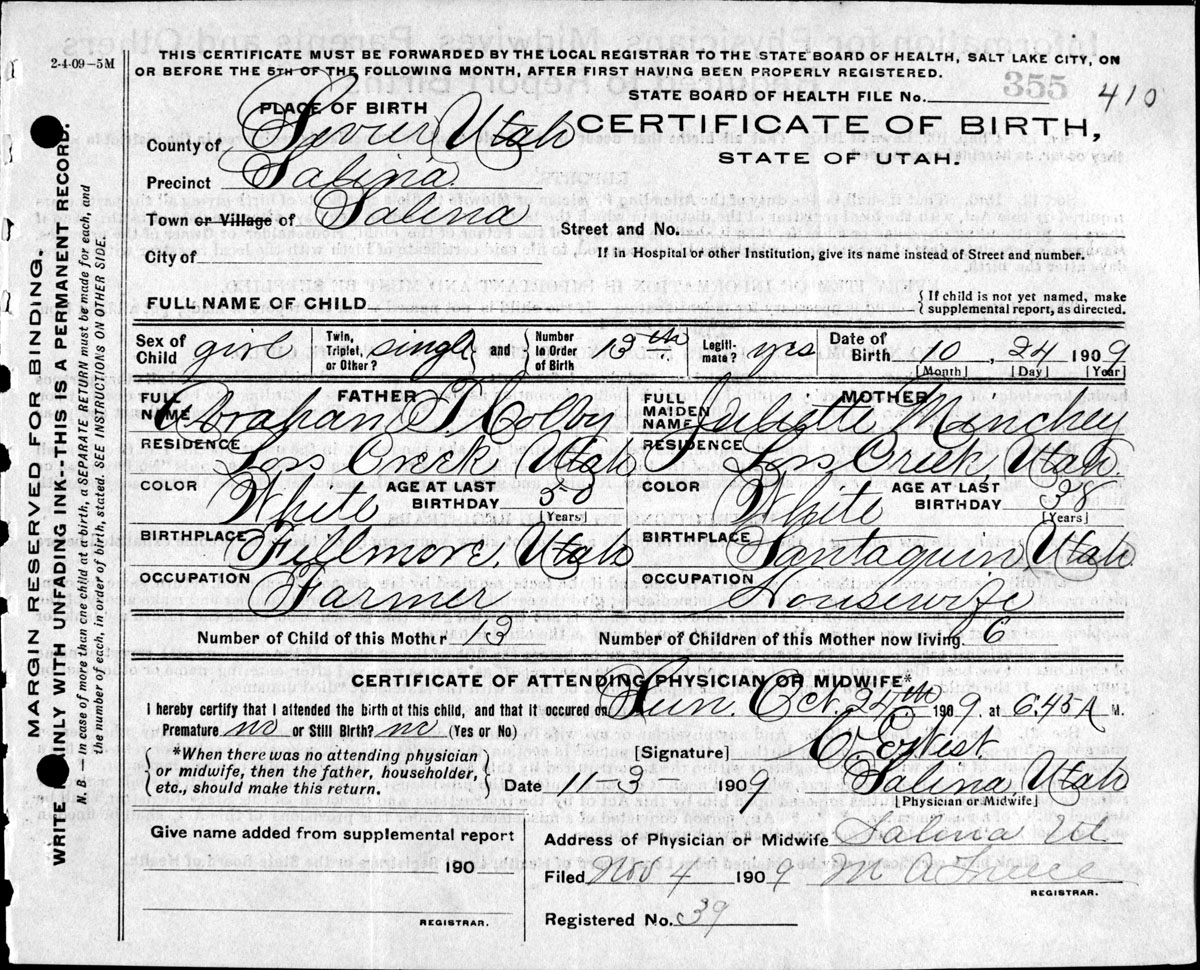 2-4-09-5M
THIS CERTIFICATE MUST BE FORWARDED BY THE LOCAL REGISTRAR TO THE STATE BOARD OF HEALTH, SALT LAKE CITY, ON
OR BEFORE THE 5TH OF THE FOLLOWING MONTH, AFTER FIRST HAVING BEEN PROPERLY REGISTERED.
355
STATE BOARD OF HEALTH FILE No. 410
PLACE OF BIRTH
CERTIFICATE OF BIRTH,
STATE OF UTAH.
County of Sevier Utah
Precinct Salina
Town or Village of Salina
Street and No.
City of
If in Hospital or other Institution, give its name instead of Street and number.
FULL NAME OF CHILD
{ If child is not yet named, make
supplemental report, as directed.
Sex of Child girl Twin, Triplet, or Other? single and Number in Order of Birth 13th Legiti-mate? yes Date of Birth 10, 24 1909
[Month] [Day] [Year]
FATHER MOTHER
FULL NAME Abraham T. Colby FULL MAIDEN NAME Juliette Manchey
RESIDENCE Loss Creek, Utah RESIDENCE Loss Creek, Utah.
COLOR White AGE AT LAST BIRTHDAY 50 [Years] COLOR White AGE AT LAST BIRTHDAY 38 [Years]
BIRTHPLACE Fillmore, Utah BIRTHPLACE Santaquin, Utah
OCCUPATION Farmer OCCUPATION Housewife
Number of Child of this Mother 13 Number of Children of this Mother now living. 6
CERTIFICATE OF ATTENDING PHYSICIAN OR MIDWIFE*
I hereby certify that I attended the birth of this child, and that it occured on Sun. Oct. 24th 1909. at 6.45 A M.
Premature no or Still Birth? no (Yes or No)
*When there was no attending physician
or midwife, then the father, householder,
etc., should make this return.
[Signature] West
Date 11-3 1909 Salina, Utah
[Physician or Midwife]
Give name added from supplemental report
190
REGISTRAR.
Address of Physician or Midwife Salina Ut.
Filed Nov 4 1909 M A
REGISTRAR.
Registered No. 39
MARGIN RESERVED FOR BINDING.
WRITE PLAINLY WITH UNFADING INK--THIS IS A PERMANENT RECORD.
N. B.—In case of more than one child at a birth, a SEPARATE RETURN must be made for each, and
the number of each, in order of birth, stated. SEE INSTRUCTIONS ON OTHER SIDE.